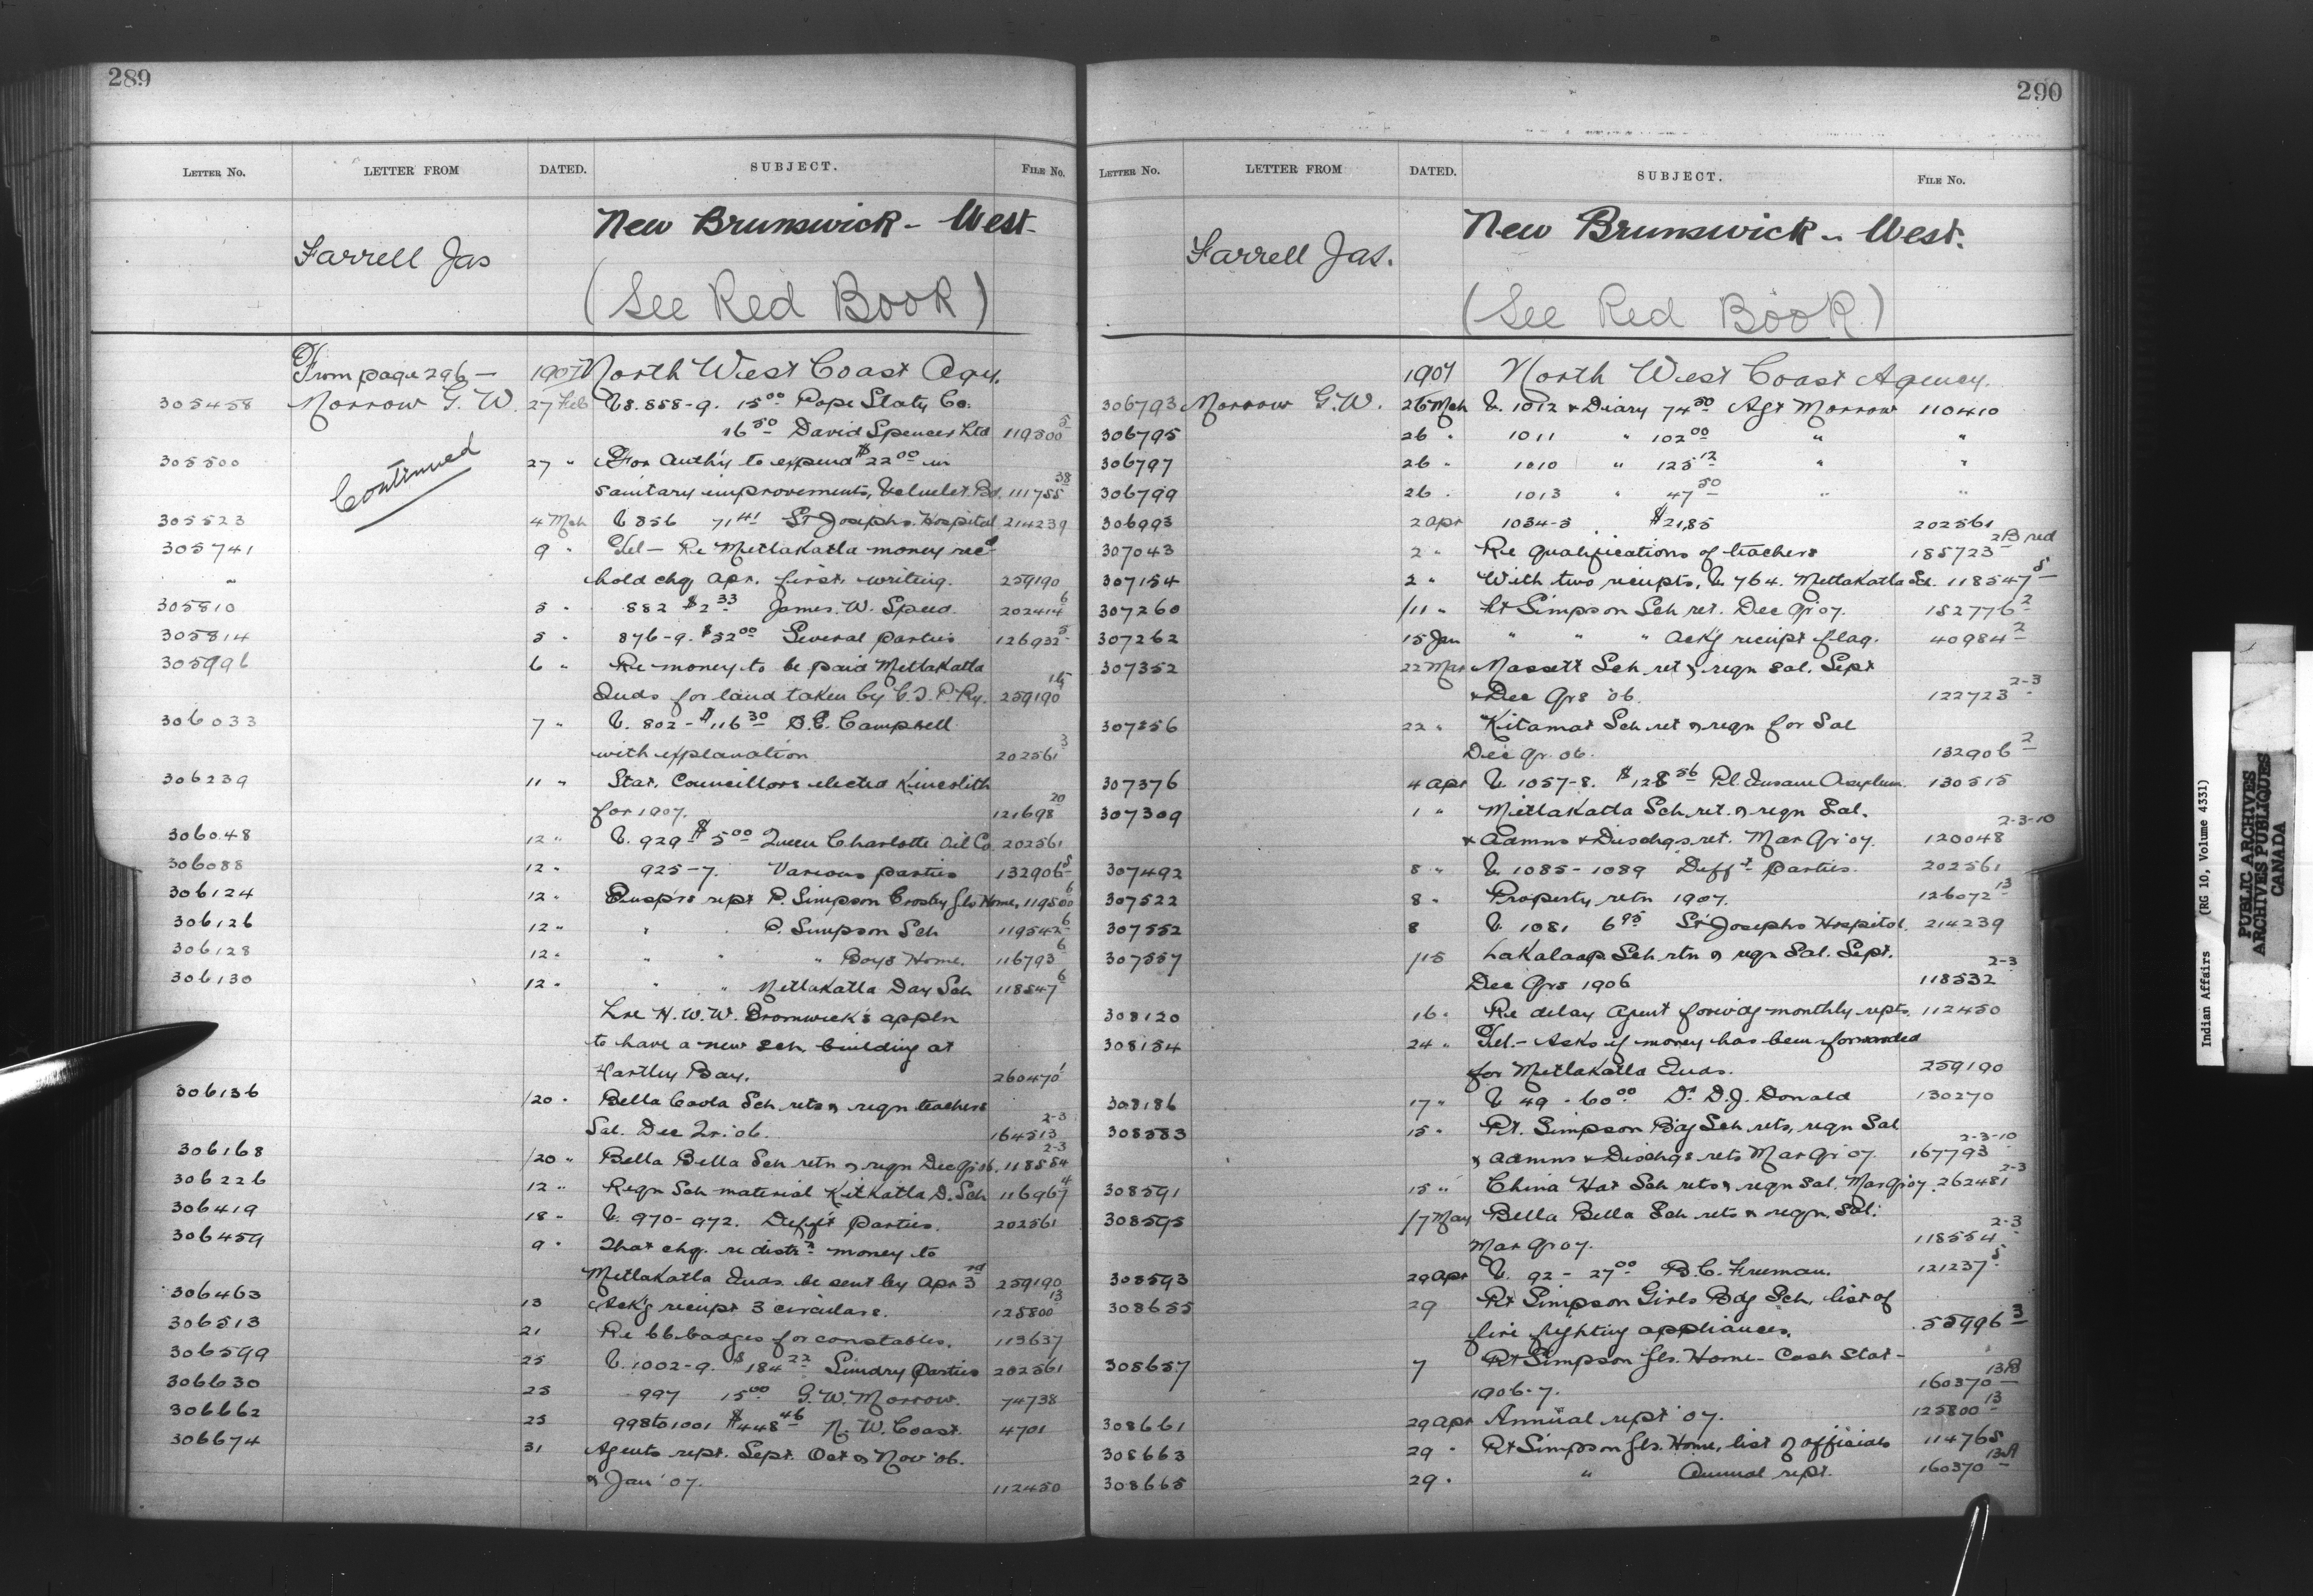 289
LETTER NO. LETTER FROM DATED. SUBJECT. FILE NO.
Farrell Jas New Brunswick - West
(See Red Book)
From page 296 — 1907 North West Coast Agcy.
305458 Morrow G. W. 27 Feb V. 858-9. 15 00 Pope Staty Co.
16 50 David Spencer Ltd 119500 5
305500 Continued 27 " For Auth'y to expend $22 00 in
sanitary improvements, Bd. 111755 38
305523 4 Mch V 856 71 41 St Josephs Hospital 214239
305741 9 " Tel — Re Metlakatla money rec'd
" hold chq. Apr. first, writing. 259190
305810 5 " 882 $2 33 James. W. Speed. 202414 6
305814 5 " 876-9. $52 00 Several parties 126932 5
305996 6 " Re money to be paid Metlakatla
Inds for land taken by G.T.P. Ry. 259190 15
306033 7 " V. 802 - $116 30 Campbell
with explanation 202561 3
306239 11 " Stat. Councillors elected Kincolith
for 1907. 121698 20
306048 12 " V. 929 $5 00 Queen Charlotte Oil Co 202561
306088 12 " 925-7. Various parties 132906 5
306124 12 " Insp'rs rept P. Simpson Crosby Gls Home, 119500 6
306126 12 " " " P. Simpson Sch 119542 6
306128 12 " " " " Boys Home. 116793 6
306130 12 " " " Metlakatla Day Sch 118547 6
Lre H. W. W. Bromwick's appln
to have a new sch. building at
Hartley Bay. 260470 1
306136 /20 " Bella Coola Sch rets & reqn teachers
Sal. Dec Qr. 06. 164513 2-3
306168 /20 " Bella Bella Sch retn & reqn Dec Qr 06, 118554 2-3
306226 12 " Reqn Sch material Kitkatla D. Sch 116967 4
306419 18 " V. 970-972. Diff't parties. 202561
306459 9 " That chq. re distr'n money to
Metlakatla Inds. be sent by Apr 3rd 259190
306463 13 Ack'g receipt 3 circulars. 125800 13
306513 21 Re 66 badges for constables. 113637
306599 25 V. 1002-9. $184 22 Sundry parties 202561
306630 25 997 15 00 G. W. Morrow. 74738
306662 25 998 to 1001 $448 46 N. W. Coast. 4701
306674 31 Agents rept. Sept. Oct & Nov '06.
& Jan '07. 112450
290
LETTER NO. LETTER FROM DATED. SUBJECT. FILE NO.
Farrell Jas. New Brunswick - West.
(See Red Book)
1907 North West Coast Agency.
306793 Morrow G. W. 26 Mch V. 1012 & Diary 74 50 Agt Morrow 110410
306795 26 " 1011 " 102 00 " "
306797 26 " 1010 " 125 12 " "
306799 26 " 1013 " 47 50 " "
306993 2 Apr 1034-5 $21,85 202561
307043 2 " Re qualifications of teachers 185723 2B red
307154 2 " With two receipts, V. 764. Metlakatla Sch. 118547 5
307260 /11 " Pt Simpson Sch ret. Dec Qr 07. 152776 2
307262 15 Jan " " " Ack'g receipt flag. 40984 2
307352 22 Mar Massett Sch ret & reqn Sal. Sept
& Dec Qrs '06. 122723 2-3
307356 22 " Kitamat Sch ret & reqn for Sal
Dec Qr. 06. 132906 2
307376 4 Apr V. 1057-8. $128 56 Pl. Insane Asylum. 130515
307309 1 " Metlakatla Sch ret. & reqn Sal.
& Admns & Dischgs ret. Mar Qr 07. 120048 2-3-10
307492 8 " V. 1085-1089 Diff't parties. 202561
307522 8 " Property retn 1907. 126072 13
307552 8 V. 1081 6 95 St Josephs Hospital. 214239
307557 /15 Lakalaap Sch rtn & reqn Sal. Sept.
Dec Qrs 1906 118532 2-3
308120 16 " Re delay Agent forwdg monthly repts. 112450
308154 24 " Tel. - Asks if money has been forwarded
for Metlakatla Inds. 259190
308186 17 " V 49 - 60 00 Dr D. J. Donald 130270
308583 15 " Pt. Simpson Bdg Sch rets, reqn Sal
& Admns & Dischgs rets Mar Qr 07. 167793 2-3-10
308591 15 " China Hat Sch rets & reqn Sal. Mar Qr 07. 262481 2-3
308595 /7 May Bella Bella Sch rets & reqn. Sal.
Mar Qr 07. 118554 2-3
308593 29 Apr V. 92 - 27 00 B. C. Freeman. 121237 5
308655 29 Pt Simpson Girls Bdg Sch, list of
fire fighting appliances. 55996 3
308657 7 Pt Simpson Gls. Home - Cash Stat -
1906-7. 160370 13B
308661 29 Apr Annual rept '07. 125800 13
308663 29 " Pt Simpson Gls. Home, list of officials 114765
308665 29 " " Annual rept. 160370 13A
Indian Affairs (RG 10, Volume 4331)
PUBLIC ARCHIVES
ARCHIVES PUBLIQUES
CANADA